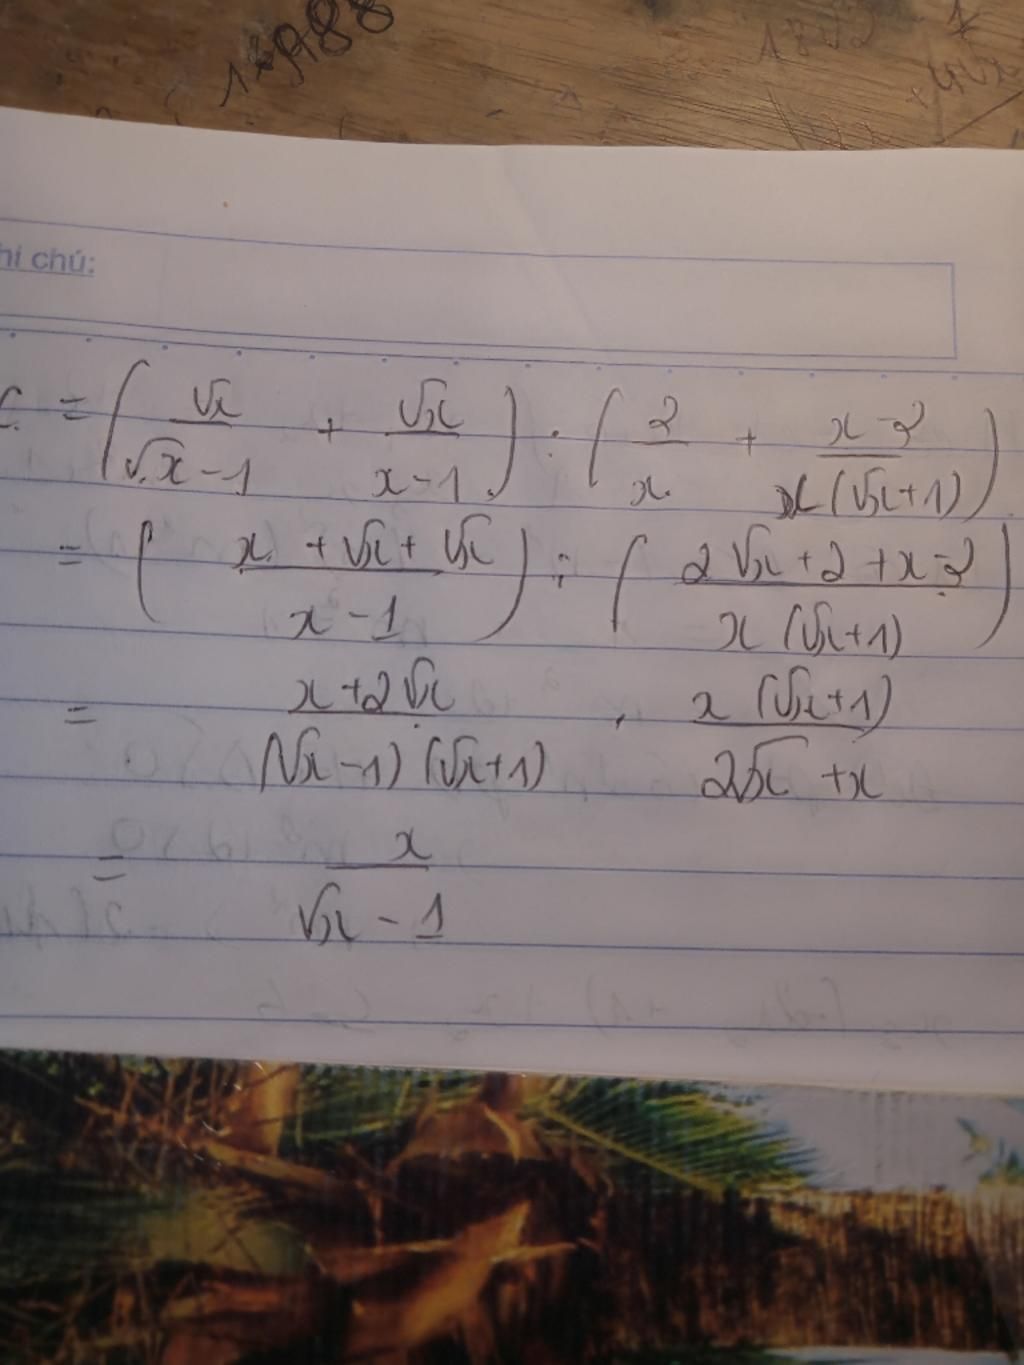 1 1988
hi chú:
C = (√x/(√x-1) + √x/(x-1)) : (2/x + (x-2)/(x(√x+1)))
= ((x+√x+√x)/(x-1)) : ((2√x+2+x-2)/(x(√x+1)))
= (x+2√x)/((√x-1)(√x+1)) . (x(√x+1))/(2√x+x)
= x/(√x-1)